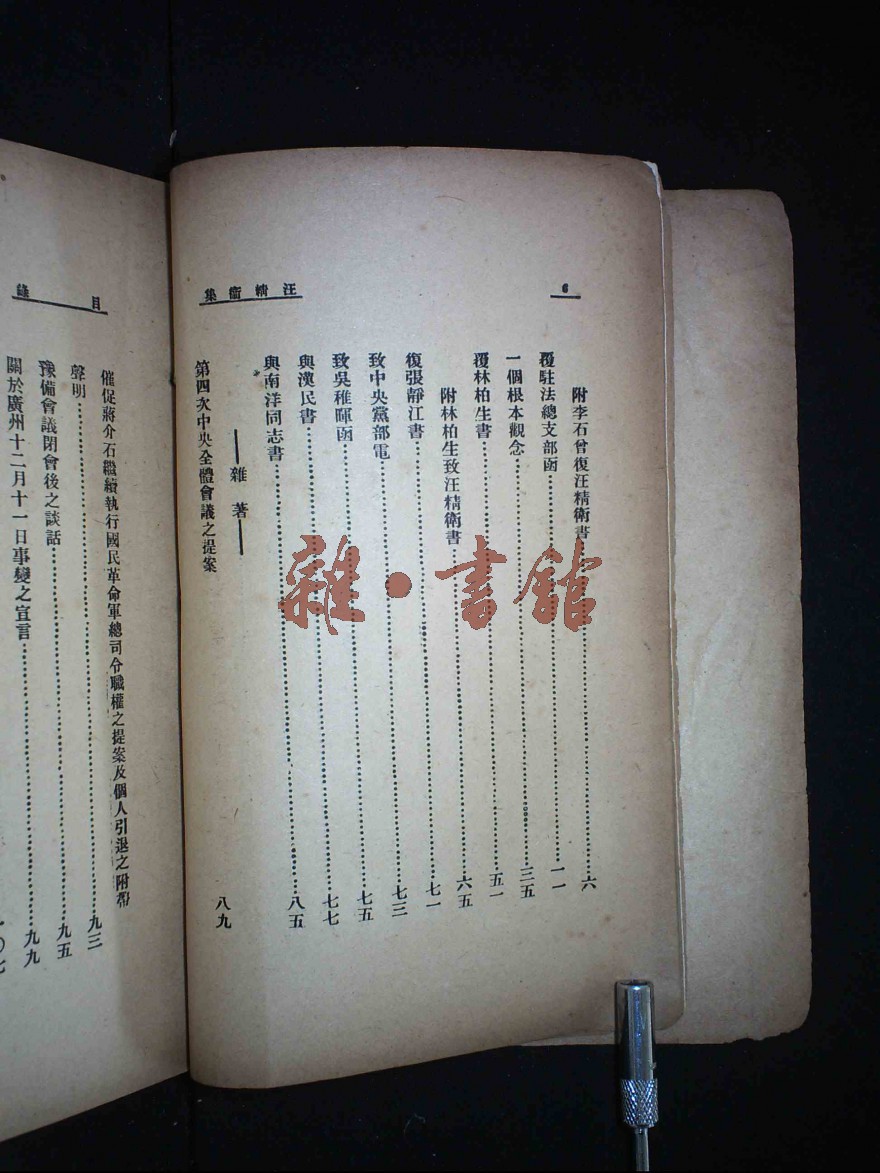 6
汪精衞集
附李石曾復汪精衞書……六
覆駐法總支部函……一一
一個根本觀念……三五
覆林柏生書……五一
附林柏生致汪精衞書……六五
復張靜江書……七一
致中央黨部電……七三
致吳稚暉函……七五
與漢民書……七七
與南洋同志書……八五
——雜著——
第四次中央全體會議之提案 八九
目錄
催促蔣介石繼續執行國民革命軍總司令職權之提案及個人引退之附帶
聲明……九三
豫備會議閉會後之談話……九五
關於廣州十二月十一日事變之宣言……九九
一〇七
雜·書館